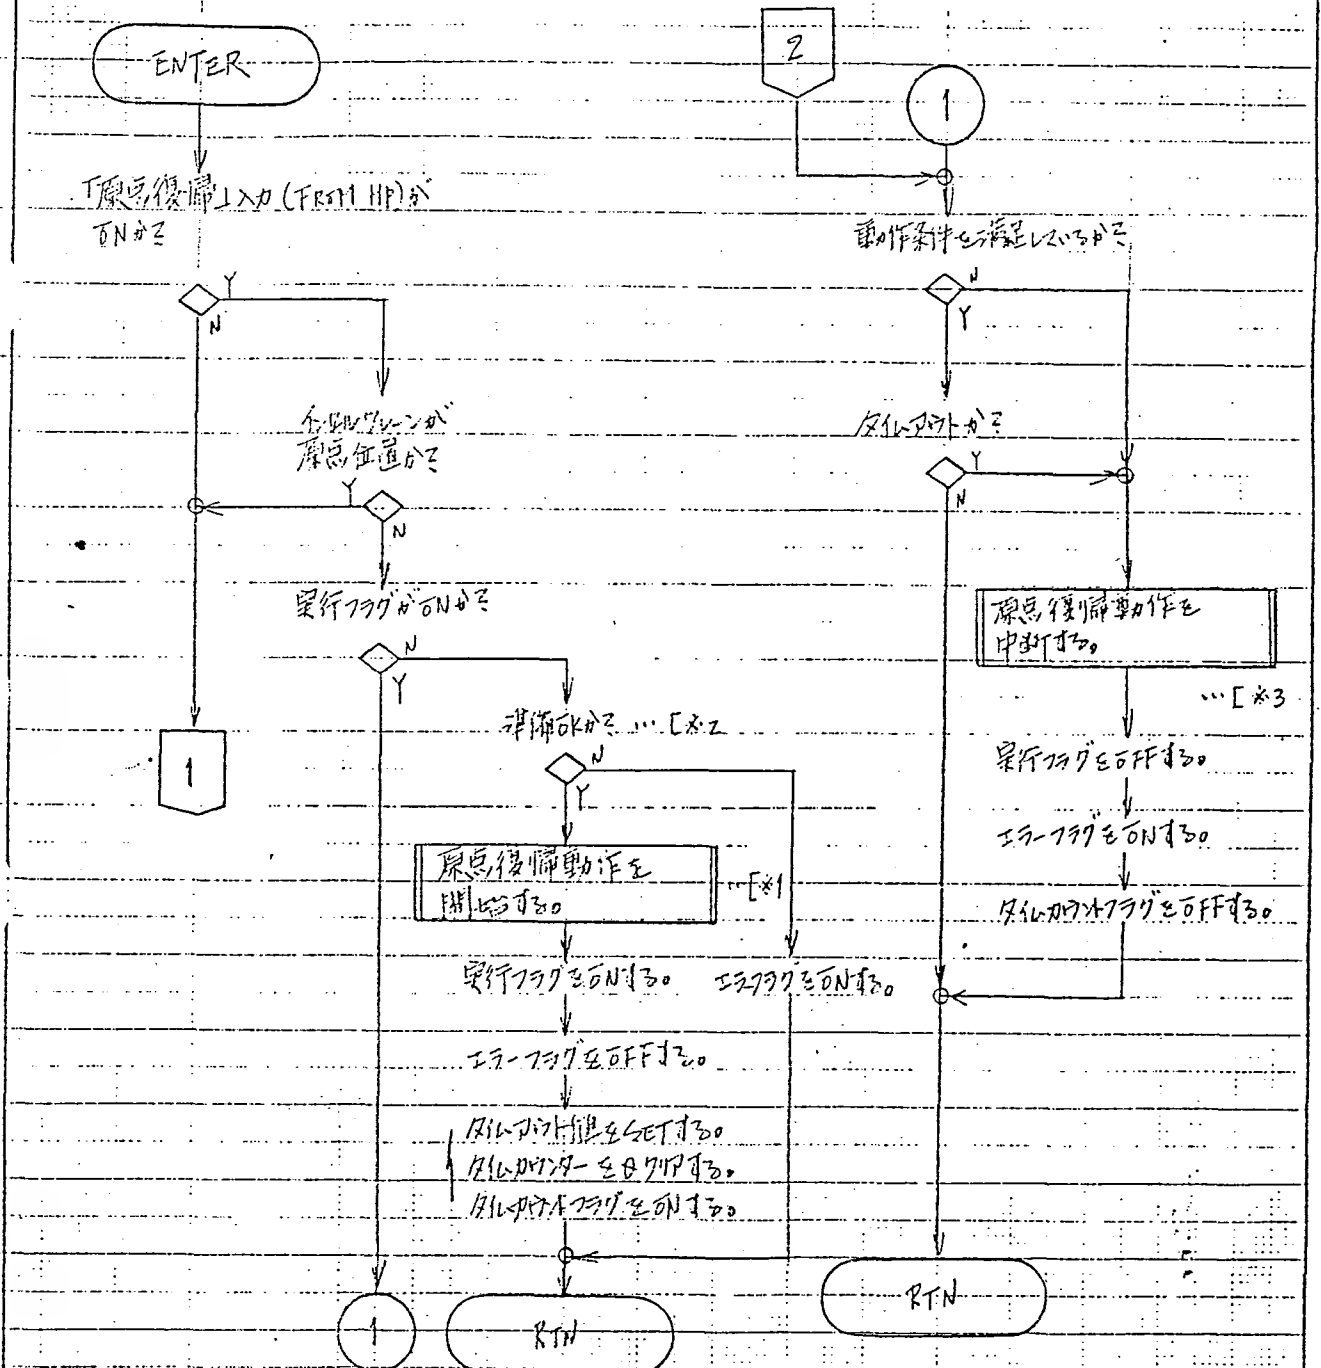 ENTER
「原点復帰」入力(FROM HP)が
ONか?
Y
N
原点位置か?
Y
N
実行フラグがONか?
N
Y
準備OKか? … [※2
N
Y
1
原点復帰動作を
開始する。
…[※1
実行フラグをONする。
エラーフラグをONする。
エラーフラグをOFFする。
タイムアウト値をSETする。
タイムカウンターを0クリアする。
タイムカウントフラグをONする。
1
RTN
2
1
動作条件を満足しているか?
N
Y
タイムアウトか?
Y
N
原点復帰動作を
中断する。
…[※3
実行フラグをOFFする。
エラーフラグをONする。
タイムカウントフラグをOFFする。
RTN